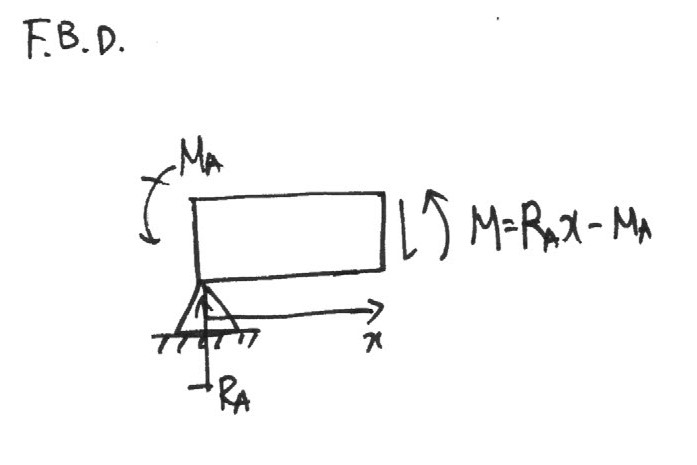 F.B.D.
M_A
M=R_Ax-M_A
x
R_A